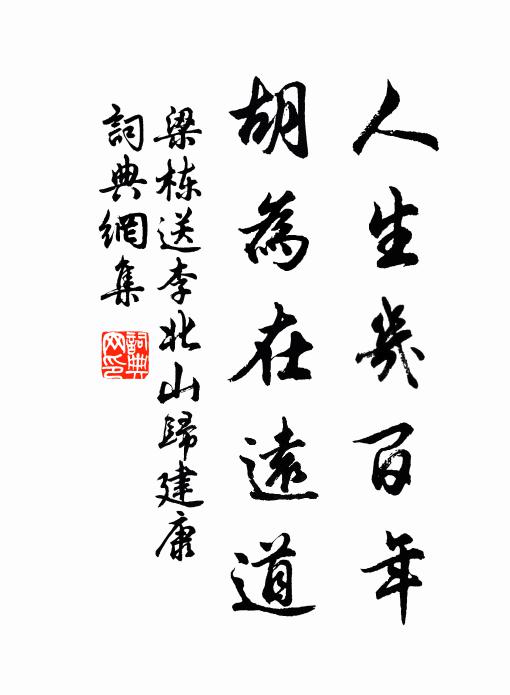 人生幾百年
胡為在遠道
梁栋送李北山歸建康
詞典網集
詞典網印